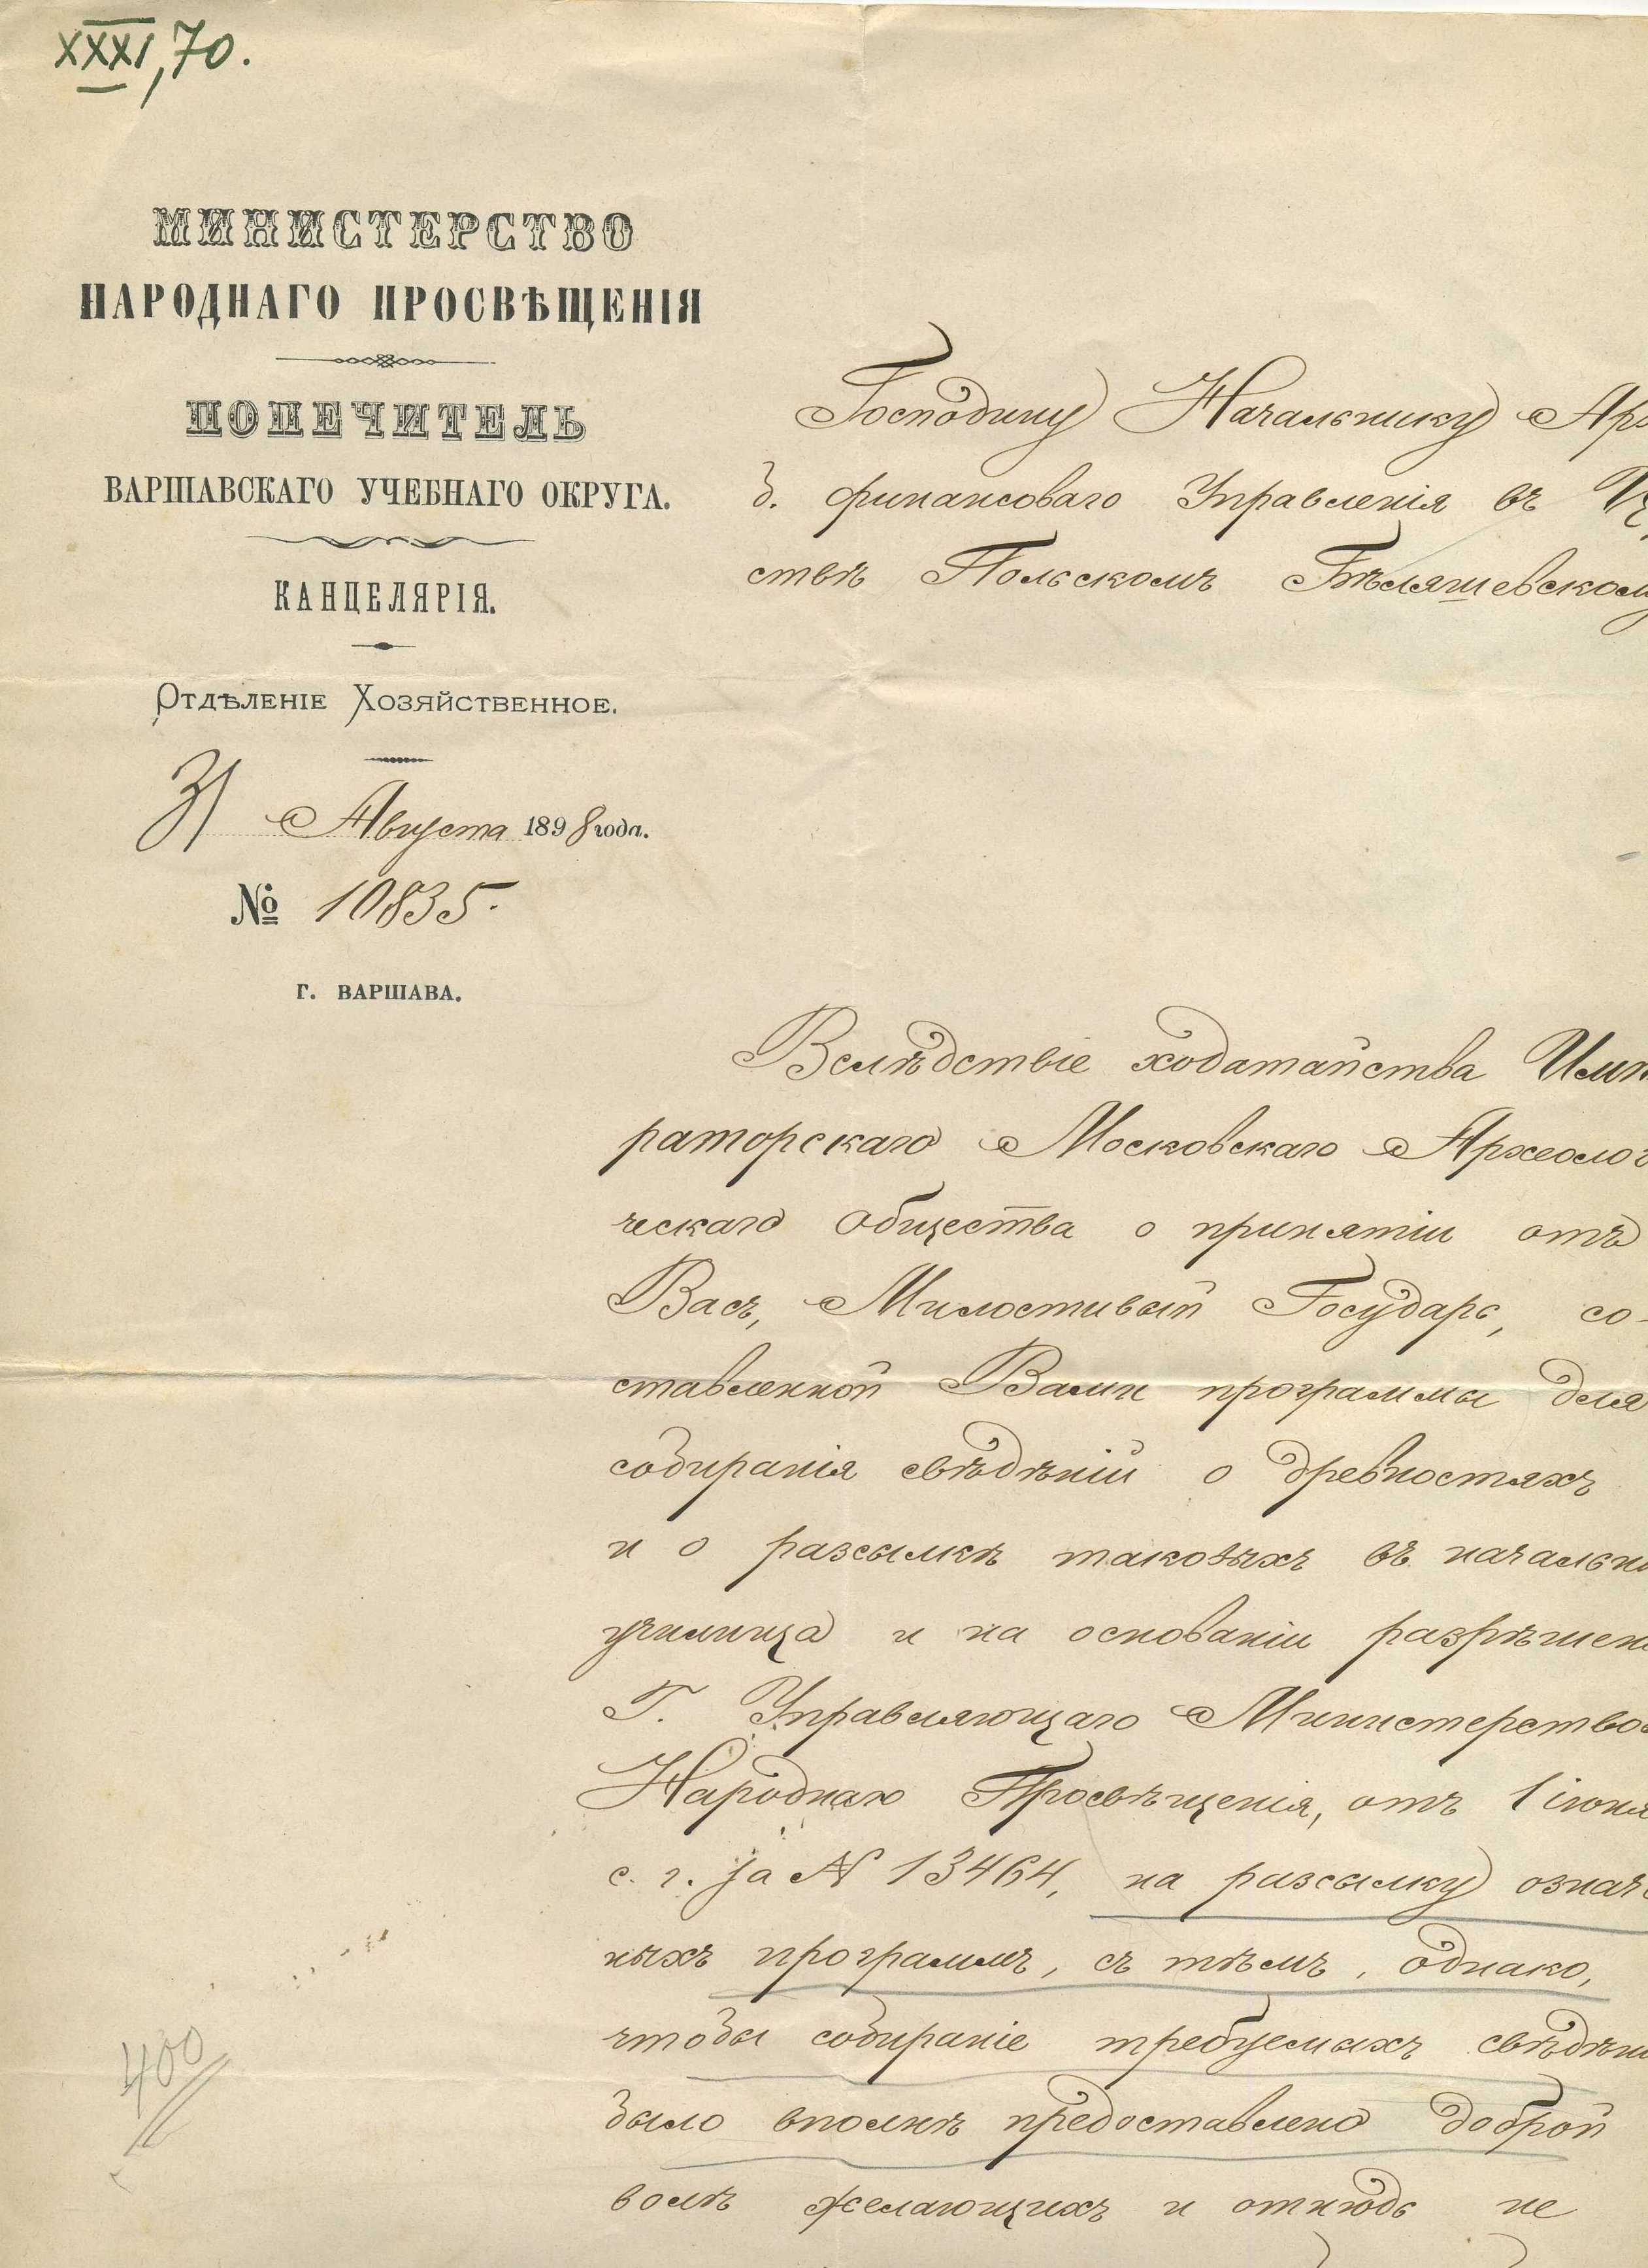 XXXI, 70.
МИНИСТЕРСТВО
НАРОДНАГО ПРОСВѢЩЕНІЯ
ПОПЕЧИТЕЛЬ
ВАРШАВСКАГО УЧЕБНАГО ОКРУГА.
КАНЦЕЛЯРІЯ.
Отдѣленіе Хозяйственное.
31 Августа 1898 года.
№ 10835.
Г. ВАРШАВА.
Господину Начальнику
б. финансоваго Управленія въ Ц
ствѣ Польскомъ Бѣляшевском
Вслѣдствіе ходатайства Имп
раторскаго Московскаго Археолог
ческаго Общества о принятіи отъ
Васъ, Милостивый Государь, со-
ставленной Вами программы для
собиранія свѣдѣній о древностяхъ
и о разсылкѣ таковыхъ въ начальн
училища и на основаніи разрѣшен
Г. Управляющаго Министерство
Народнаго Просвѣщенія, отъ 1 іюня
с. г. за № 13464, на разсылку означ
ныхъ программъ, съ тѣмъ, однако,
чтобы собираніе требуемыхъ свѣдѣн
было вполнѣ предоставлено доброй
волѣ желающихъ и отнюдь не
400